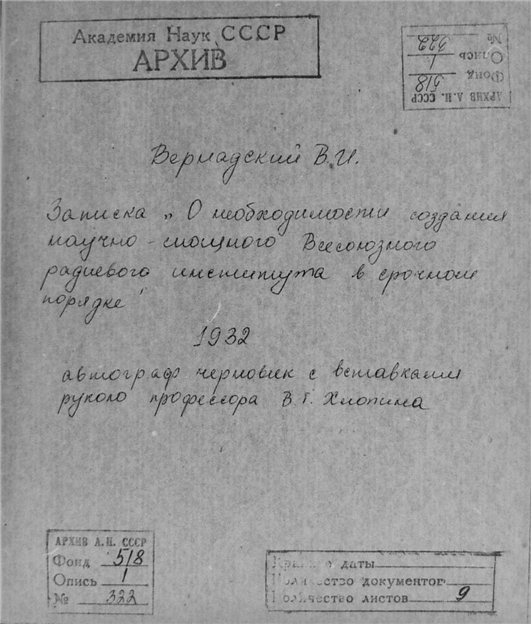 Академия Наук СССР
АРХИВ
АРХИВ А.Н. СССР
Фонд 518
Опись 1
№ 322
Вернадский В.И.
Записка „О необходимости создания
научно-мощного Всесоюзного
радиевого института в срочном
порядке"
1932
автограф черновик с вставками
рукою профессора В.Г. Хлопина
АРХИВ А.Н. СССР
Фонд 518
Опись 1
№ 322
даты
Количество документов
Количество листов 9